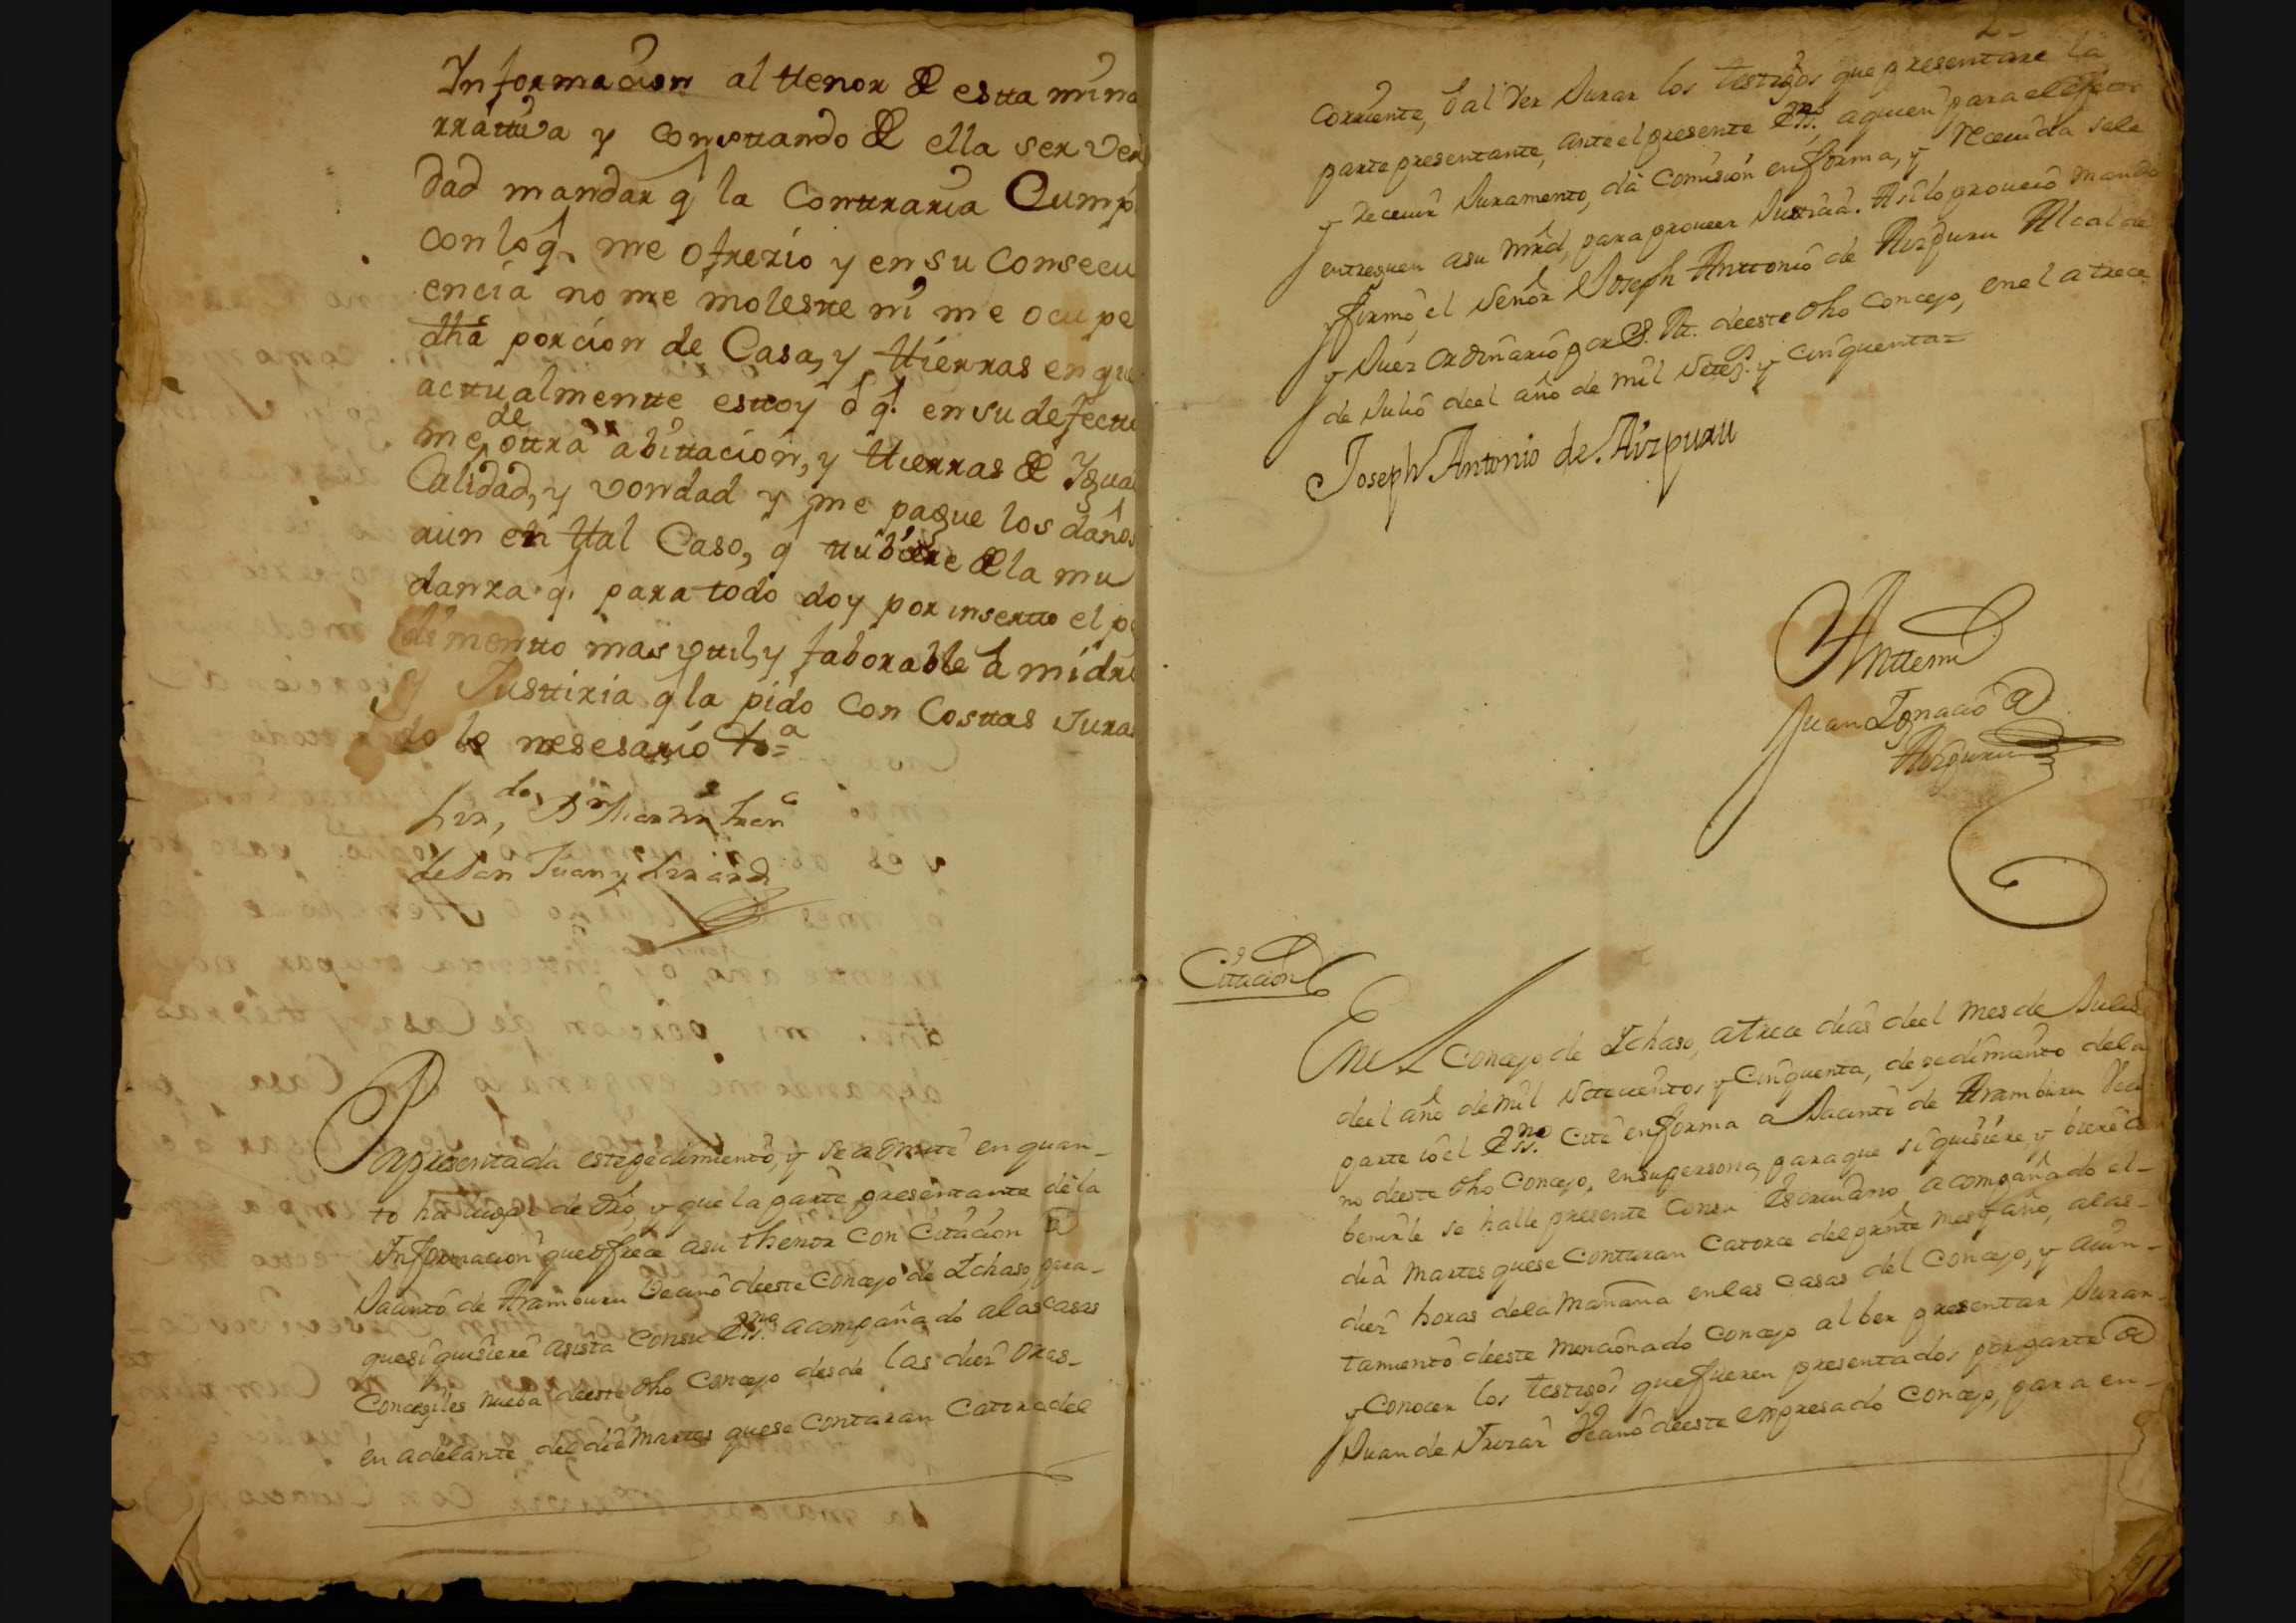 Informacion al ttenor de estta mi na
rrattiva y consttando de ella ser ver
dad mandar q̃ la conttraria Cumpl
con lo q̃ me ofrezio y en su consecu
encia no me molestte ni me ocupe
dha porcion de Casa, y ttierras en que
acttualmentte esttoy ô q̃ en su defectto
me de ottra abittacion, y ttierras de Igual
Calidad, y vondad y me pague los daños
aun en ttal Caso, q̃ ttubiere de la mu
danza q̃ para todo doy por insertto el pe
dimentto mas vttil, y faborable â mi dro
y Justtizia q̃ la pido con Costtas Jura
do lo nesesario &a=
Liz.do Dn Martin Fran.co
de San Juan y Lizardi
Papresentada este pedimiento, y se admite en quan-
to ha lugar de dro, y que la parte presentante dè la
Informacion que ofrece a su thenor con Citacion de
Jacinto de Aramburu Vecino deeste Concejo de Ichaso, para-
que si quisiere asista con su Essno. acompañado alas casas
Concegiles nueba deeste dho Concejo desde las diez oras-
en adelante del dia Martes que se contaran Catorce del
2-
corriente, è al ver Jurar los testigos que presentare la
parte presentante, ante el presente Essno. a quien para el efecto
y receuir Juramento, dà comision en forma, y receuida se le
entreguen a su mrd, para proueer Justicia. Asi lo proueio mando
y firmò el Señor Joseph Anttonio de Aizpuru Alcalde
y Juez ordinario por S. M. deeste dho Concejo, en el a trece
de Julio deel año de mil Setez.s y cinquenta=
Joseph Antonio de Aizpuru
Anttemi
Juan Ignacio de
Aizpuru
Citacion
En el Concejo de Ichaso, a trece dias deel mes de Julio
deel año de mil Setecientos y Cinquenta, de pedimiento dela
parte io el Essno. Cite en forma a Jacinto de Aramburu Veci
no deeste dho Concejo, en su persona, para que si quisiere, y biere co
benirle se halle presente con su Escriuano acompañado el-
dia Martes que se contaran Catorce del prnte mes y año, a las-
diez horas dela Mañana en las Casas del Concejo, y aiun-
tamiento deeste mencionado Concejo al ber presentar Jurar
y Conocer los testigos que fueren presentados por parte de
Juan de Irizar Vecino deeste expresado Concejo, para en-